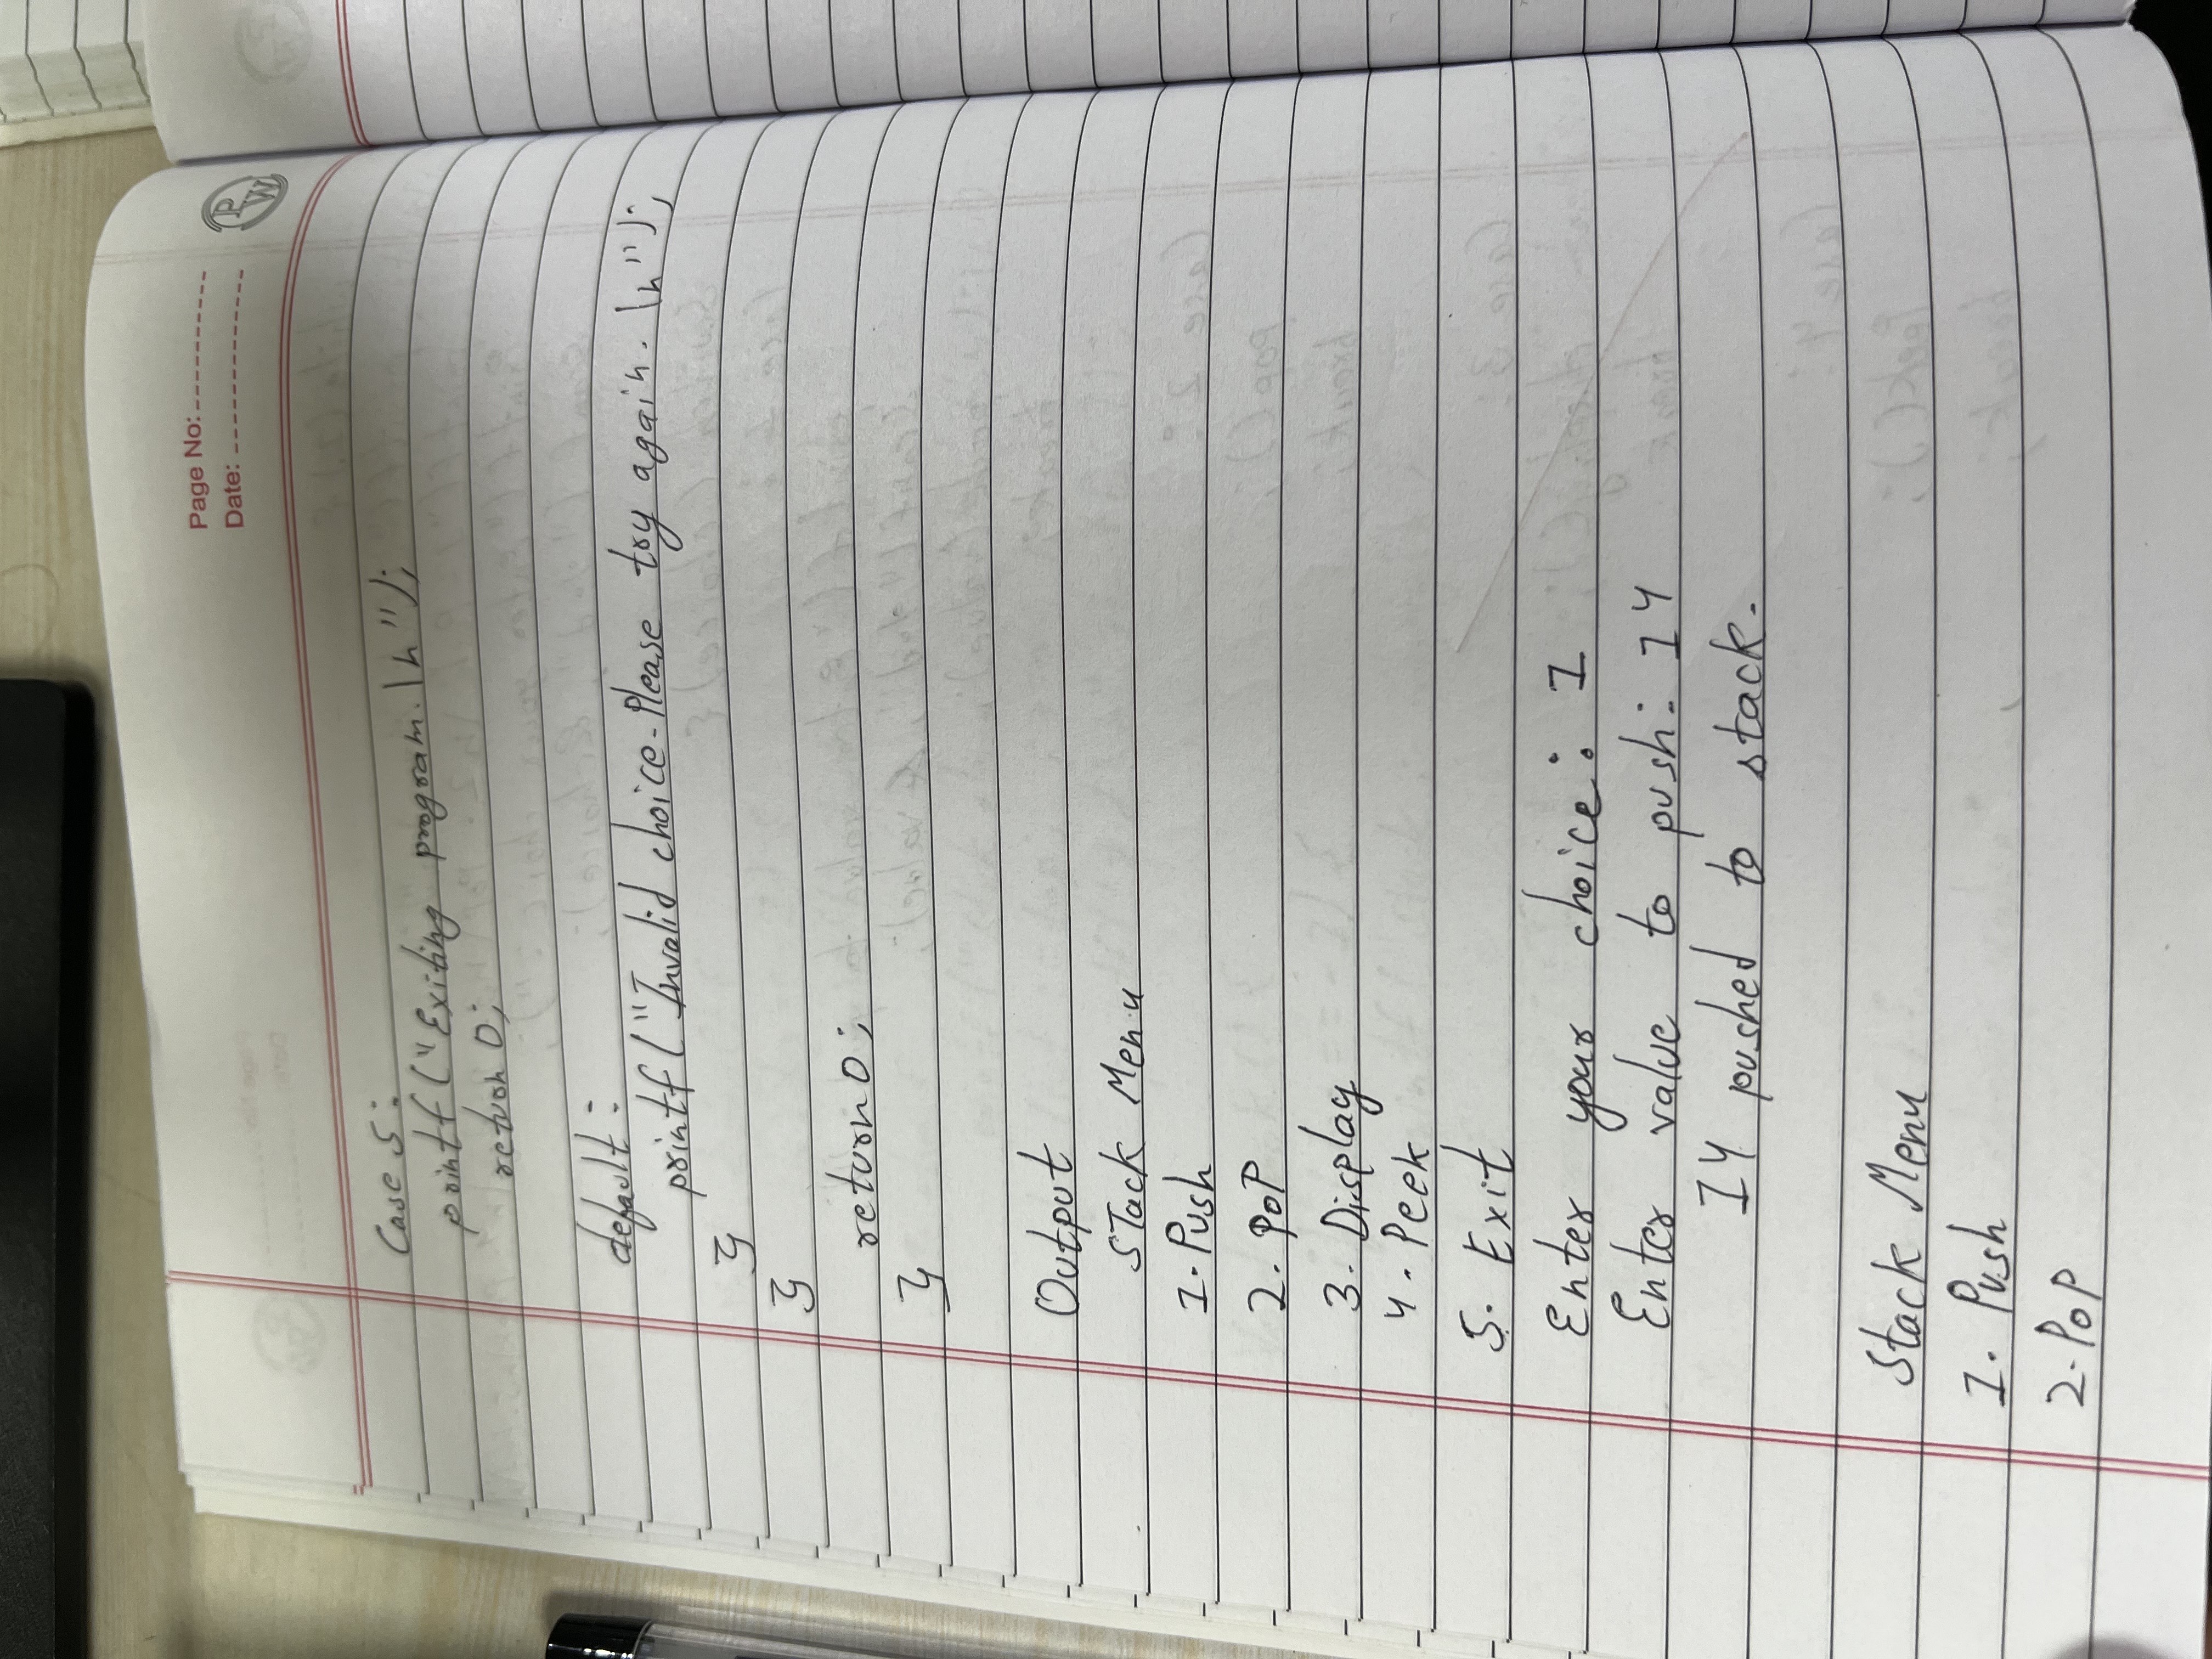 Page No:
Date:
PW
Case 5:
printf("Exiting program.\n");
return 0;
default:
printf("Invalid choice. Please try again.\n");
}
}
return 0;
}
Output
STack Menu
1. Push
2. PoP
3. Display
4. Peek
5. Exit
Enter your choice: 1
Enter value to push: 14
14 pushed to stack.
Stack Menu
1. Push
2. PoP